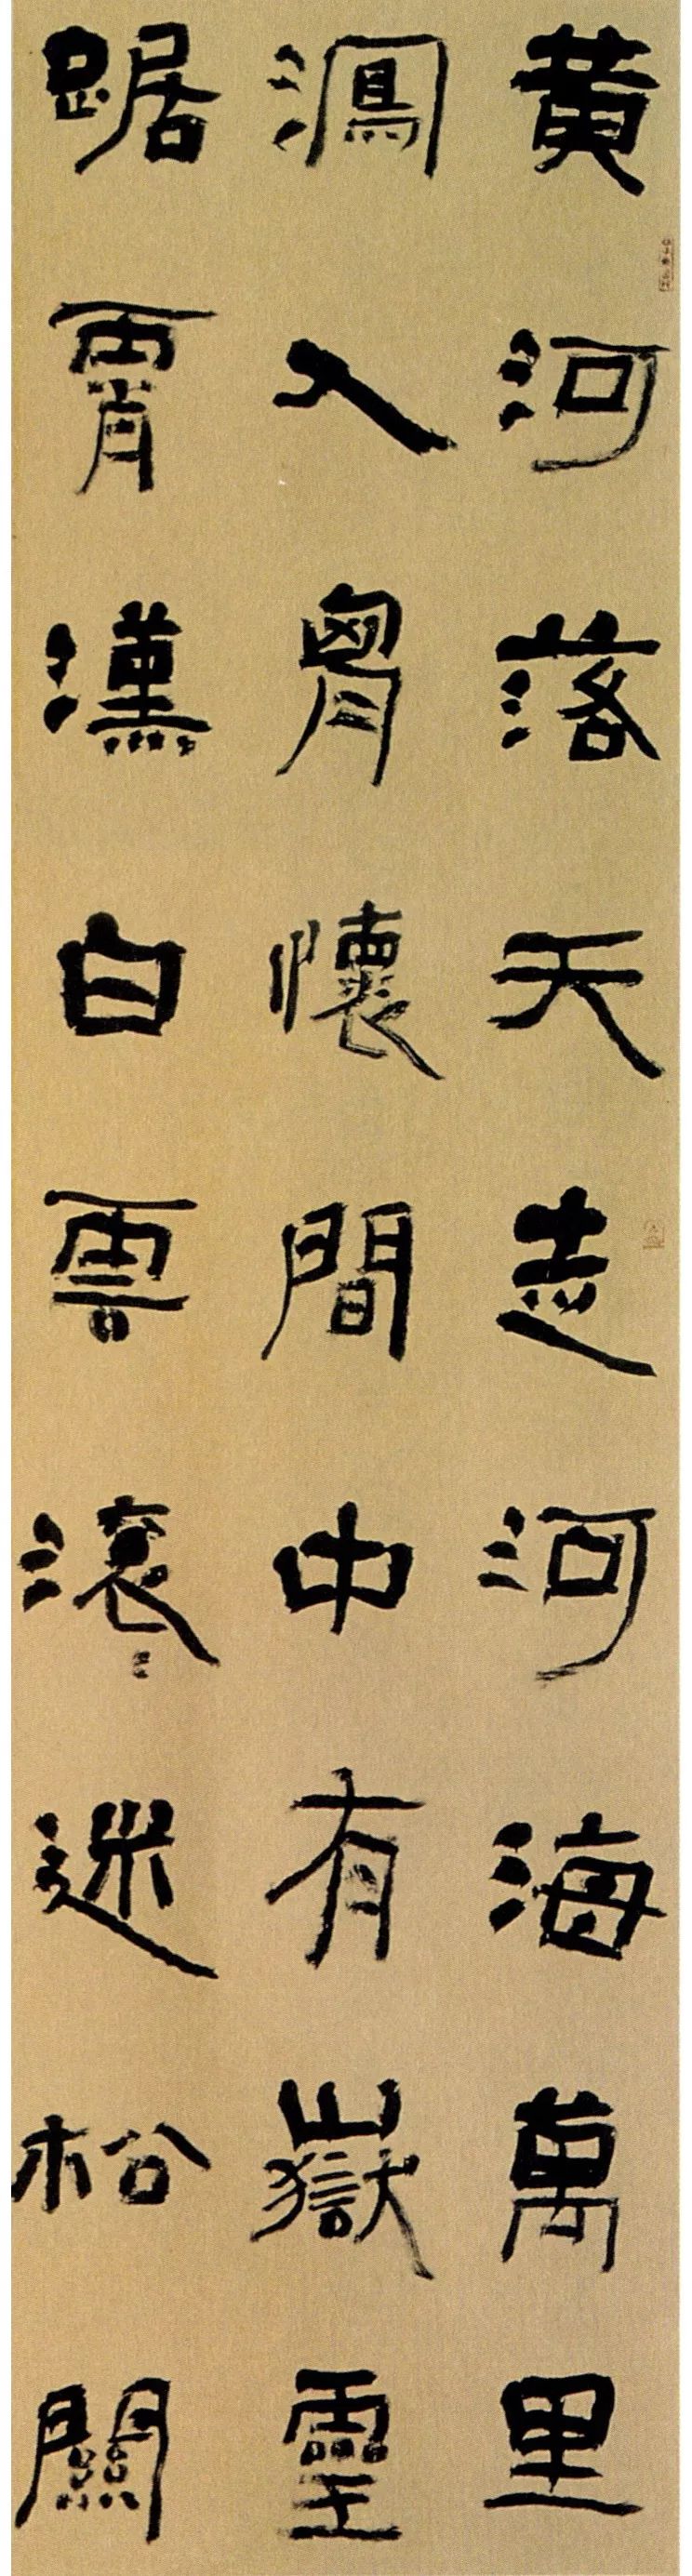 黄河落天走河海萬里
瀉入胷懷間中有嶽靈
踞霄漢白雲滾〻迷松關